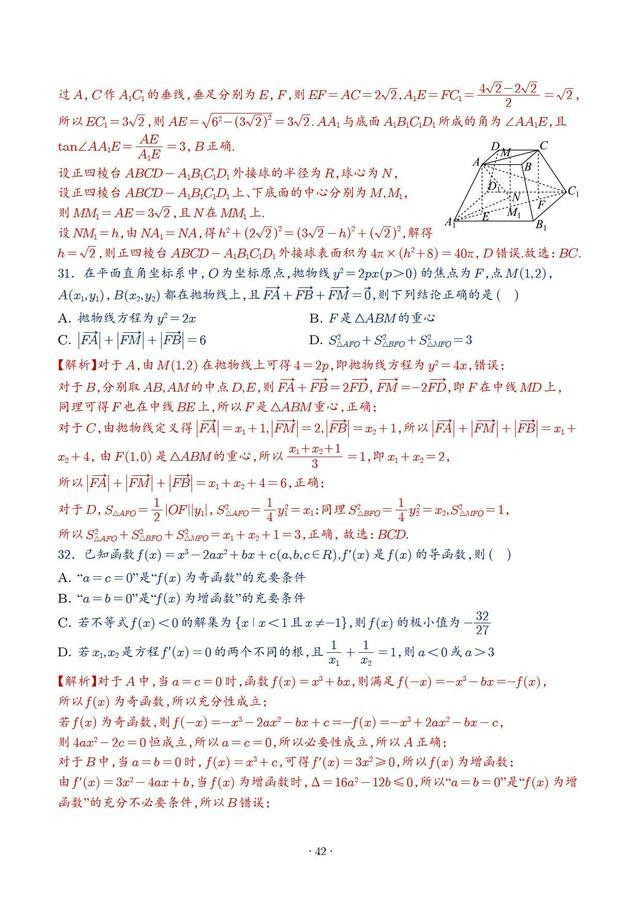 过A,C作A₁C₁的垂线,垂足分别为E,F,则EF=AC=2√2,A₁E=FC₁=(4√2-2√2)/2=√2,
所以EC₁=3√2,则AE=√(6²-(3√2)²)=3√2.AA₁与底面A₁B₁C₁D₁所成的角为∠AA₁E,且
tan∠AA₁E=AE/A₁E=3,B正确.
设正四棱台ABCD-A₁B₁C₁D₁外接球的半径为R,球心为N,
设正四棱台ABCD-A₁B₁C₁D₁上、下底面的中心分别为M,M₁,
则MM₁=AE=3√2,且N在MM₁上.
设NM₁=h,由NA₁=NA,得h²+(2√2)²=(3√2-h)²+(√2)²,解得
h=√2,则正四棱台ABCD-A₁B₁C₁D₁外接球表面积为4π×(h²+8)=40π,D错误.故选:BC.
D
M
C
A
B
D₁
N
C₁
F
A₁
E
M₁
B₁
31. 在平面直角坐标系中,O为坐标原点,抛物线y²=2px(p>0)的焦点为F,点M(1,2),
A(x₁,y₁),B(x₂,y₂)都在抛物线上,且FA→+FB→+FM→=0→,则下列结论正确的是( )
A. 抛物线方程为y²=2x B. F是△ABM的重心
C. |FA→|+|FM→|+|FB→|=6 D. S²△AFO+S²△BFO+S²△MFO=3
【解析】对于A,由M(1,2)在抛物线上可得4=2p,即抛物线方程为y²=4x,错误;
对于B,分别取AB,AM的中点D,E,则FA→+FB→=2FD→,FM→=-2FD→,即F在中线MD上,
同理可得F也在中线BE上,所以F是△ABM重心,正确;
对于C,由抛物线定义得|FA→|=x₁+1,|FM→|=2,|FB→|=x₂+1,所以|FA→|+|FM→|+|FB→|=x₁+
x₂+4,由F(1,0)是△ABM的重心,所以(x₁+x₂+1)/3=1,即x₁+x₂=2,
所以|FA→|+|FM→|+|FB→|=x₁+x₂+4=6,正确;
对于D,S△AFO=1/2|OF||y₁|,S²△AFO=1/4y₁²=x₁;同理S²△BFO=1/4y₂²=x₂,S²△MFO=1,
所以S²△AFO+S²△BFO+S²△MFO=x₁+x₂+1=3,正确,故选:BCD.
32. 已知函数f(x)=x³-2ax²+bx+c(a,b,c∈R),f′(x)是f(x)的导函数,则( )
A. “a=c=0”是“f(x)为奇函数”的充要条件
B. “a=b=0”是“f(x)为增函数”的充要条件
C. 若不等式f(x)<0的解集为{x|x<1且x≠-1},则f(x)的极小值为-32/27
D. 若x₁,x₂是方程f′(x)=0的两个不同的根,且1/x₁+1/x₂=1,则a<0或a>3
【解析】对于A中,当a=c=0时,函数f(x)=x³+bx,则满足f(-x)=-x³-bx=-f(x),
所以f(x)为奇函数,所以充分性成立;
若f(x)为奇函数,则f(-x)=-x³-2ax²-bx+c=-f(x)=-x³+2ax²-bx-c,
则4ax²-2c=0恒成立,所以a=c=0,所以必要性成立,所以A正确;
对于B中,当a=b=0时,f(x)=x³+c,可得f′(x)=3x²≥0,所以f(x)为增函数;
由f′(x)=3x²-4ax+b,当f(x)为增函数时,Δ=16a²-12b≤0,所以“a=b=0”是“f(x)为增
函数”的充分不必要条件,所以B错误;
·42·